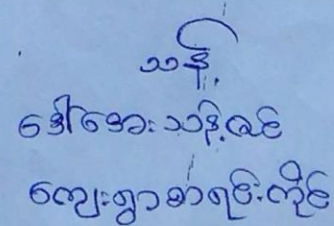 သန့်
ဒေါ်အေးသန့်ဇင်
ကျေးရွာစာရင်းကိုင်